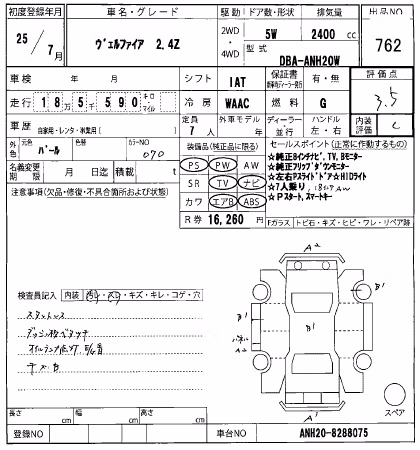 初度登録年月 車名・グレード 駆動 ドア数・形状 排気量 出品NO
25年 7月 ヴェルファイア 2.4Z 2WD・4WD 5W 2400 cc 762
型式 DBA-ANH20W
車検 年 月 シフト IAT 保証書 有・無 評価点
走行 18万5千590 キロ・マイル 冷房 WAAC 燃料 G 3.5
車歴 自家用・レンタ・事業用( ) 定員 7人 外車モデル 年 ディーラー・並行 ハンドル 左・右 内装評価 C
外色 元色 パール 色替 カラーNO 070 装備品(純正品に限る) セールスポイント(正常に作動するもの)
名義変更期限 月 日 積載 t
PS PW AW
SR TV ナビ
カワ エアB ABS
R券 16,260 円
★純正8インチナビ,TV,Bモニター
★純正フリップダウンモニター
★左右Pスライドドア☆HIDライト
★7人乗り, 18インチAW
★Pスタート,スマートキー
注意事項(欠品・修復・不具合箇所および状態)
Fガラス トビ石・キズ・ヒビ・ワレ・リペア跡
検査員記入 内装 ・キズ・キレ・コゲ・穴
A2
B1
B1
B1
A2
A1
スペア
長さ cm 幅 cm 高さ cm
登録NO 車台NO ANH20-8288075